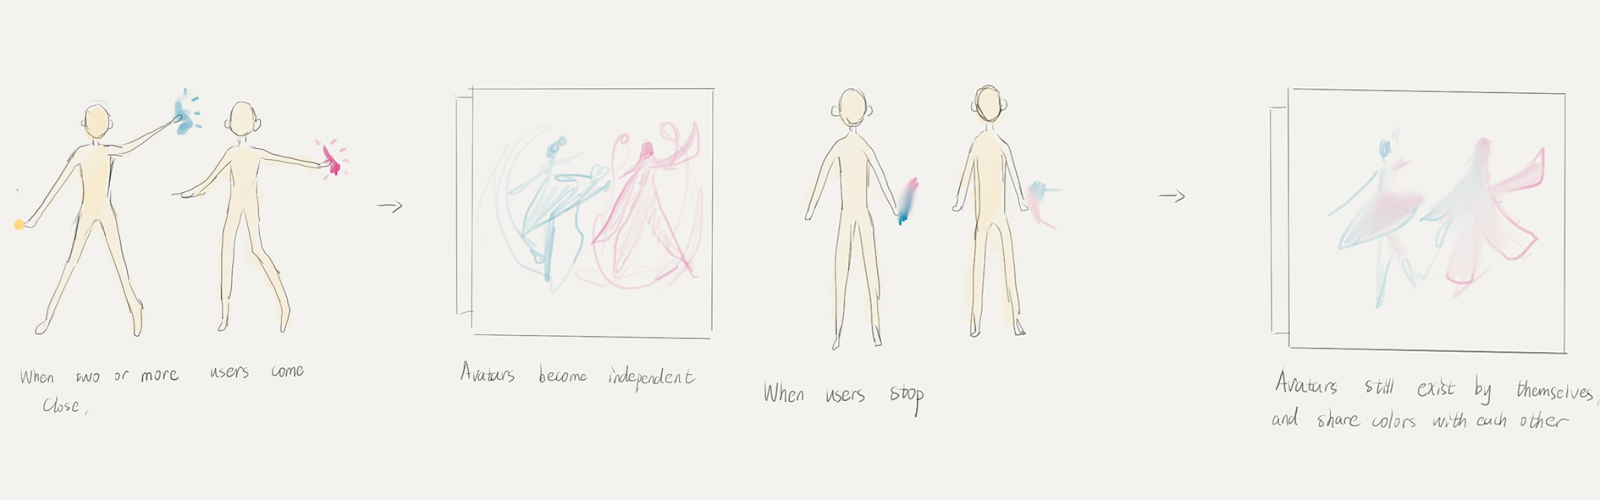 When two or more users come
close,
Avatars become independent
When users stop
Avatars still exist by themselves,
and share colors with each other